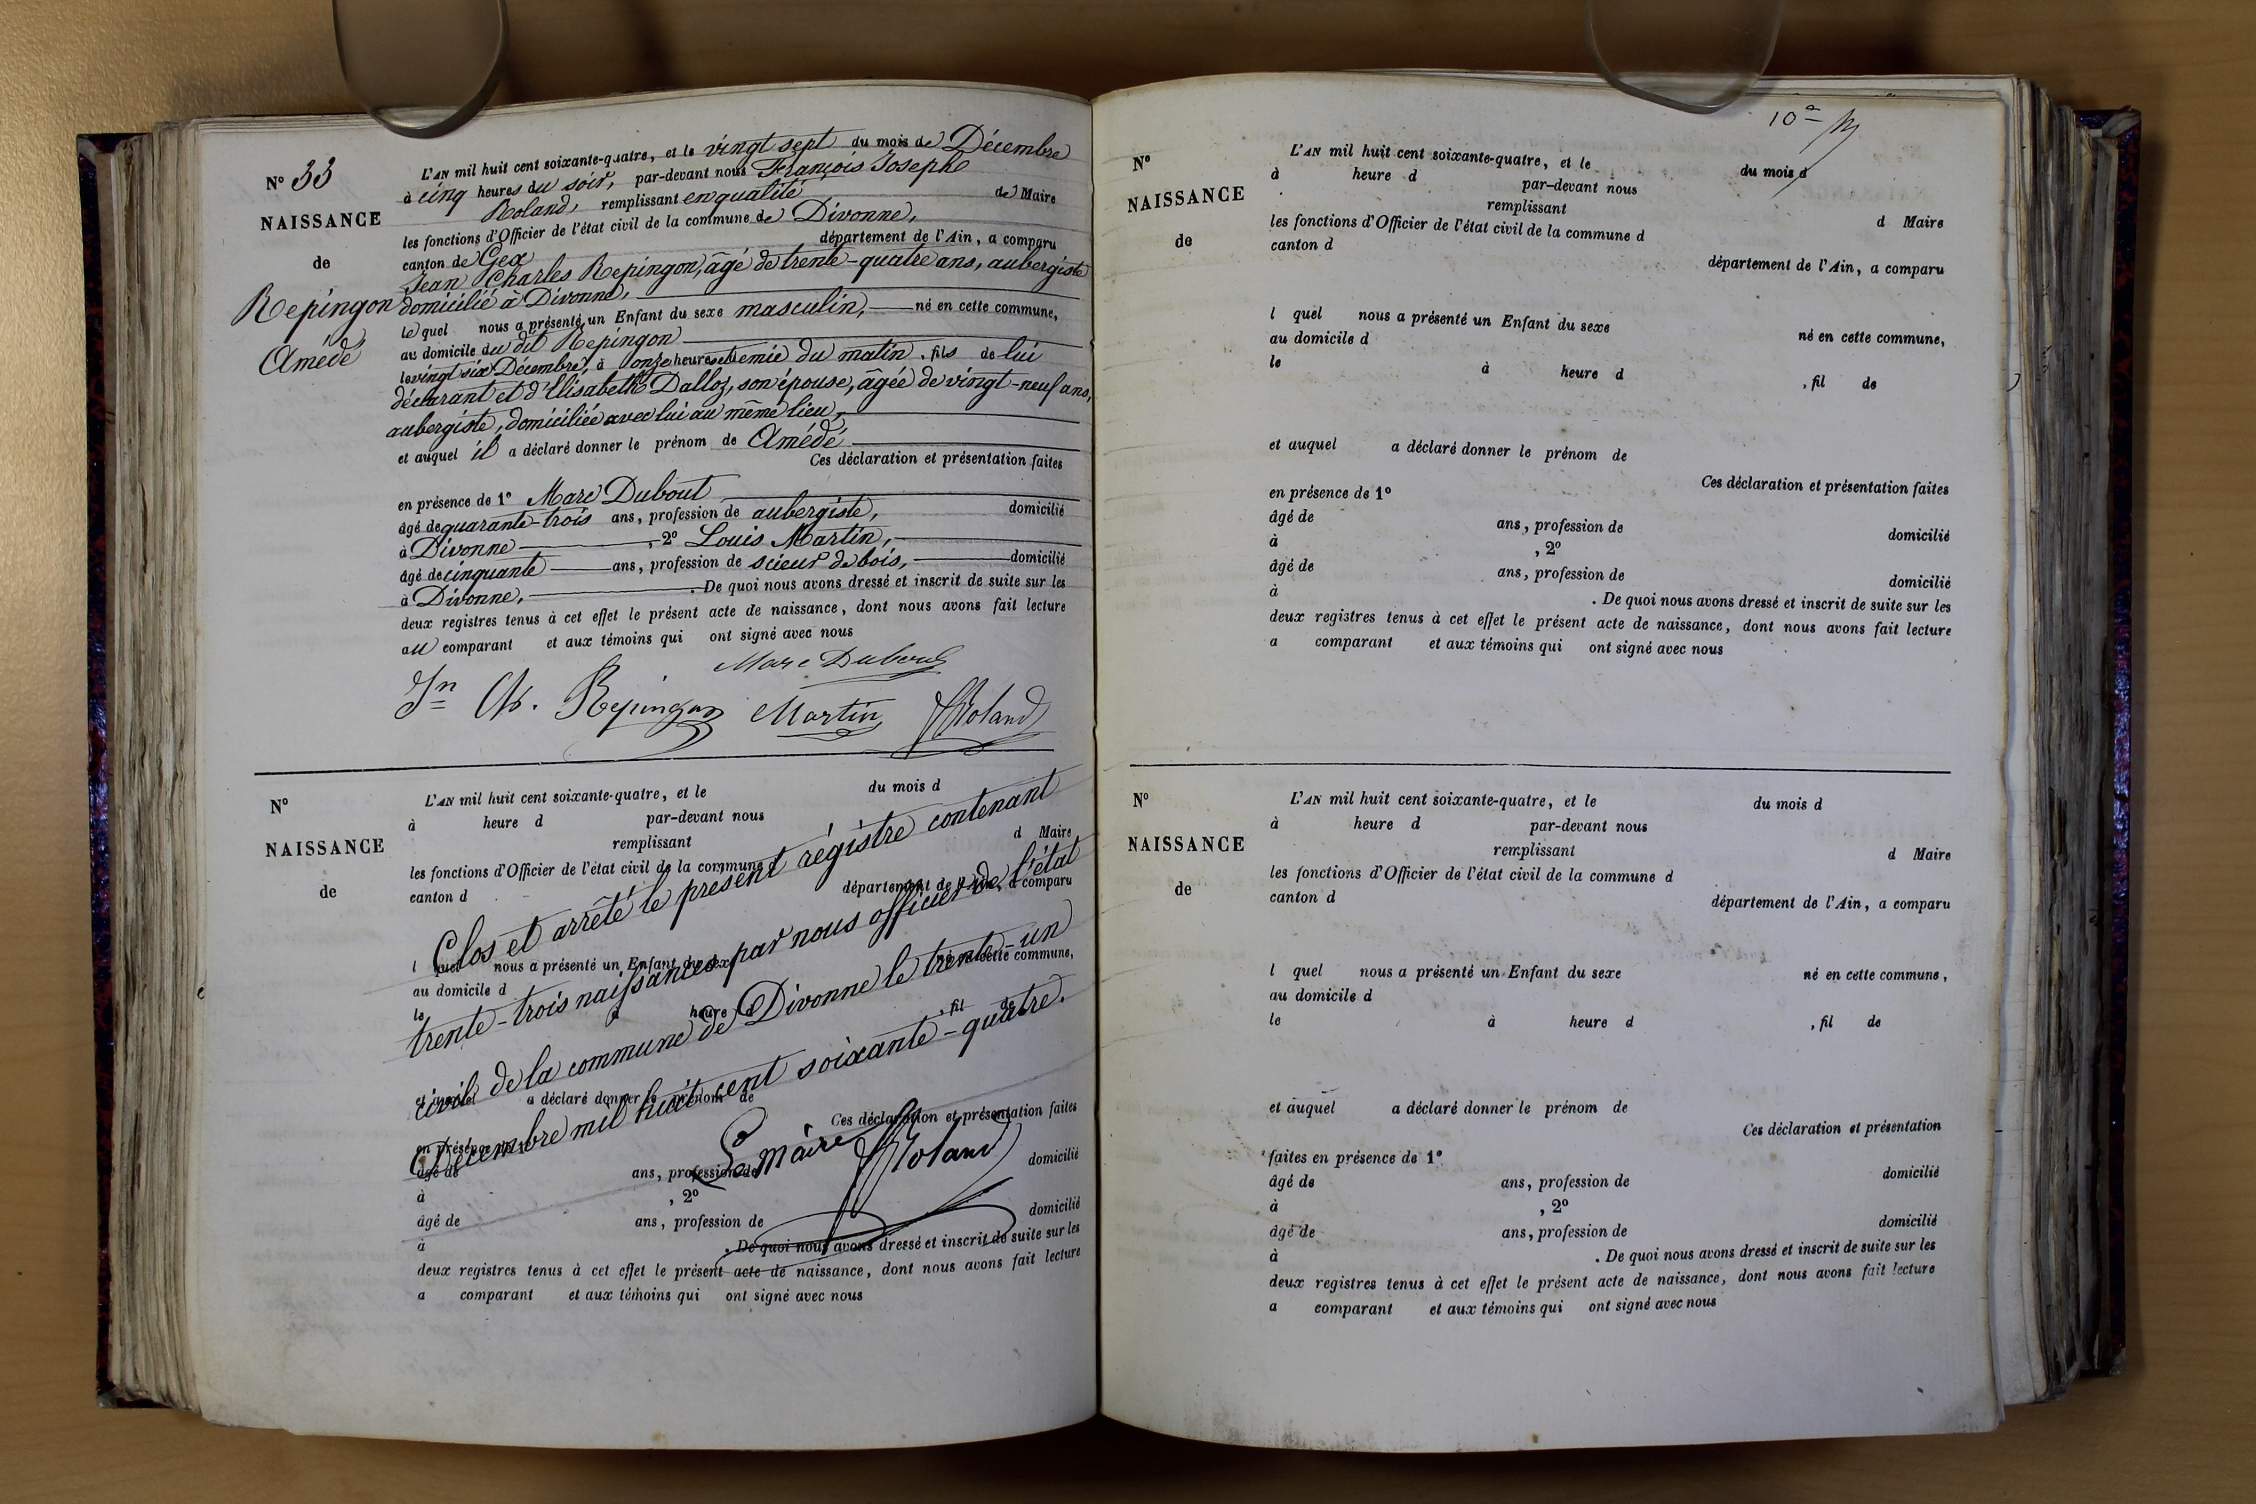 N° 33
NAISSANCE
de
Repingon
Amédé
L'AN mil huit cent soixante-quatre, et le vingt sept du mois de Décembre
à cinq heures du soir, par-devant nous François Joseph
Roland, remplissant en qualité de Maire
les fonctions d'Officier de l'état civil de la commune de Divonne,
canton de Gex département de l'Ain, a comparu
Jean Charles Repingon, âgé de trente-quatre ans, aubergiste
domicilié à Divonne,
lequel nous a présenté un Enfant du sexe masculin, né en cette commune,
au domicile du dit Repingon
le vingt six Décembre, à onze heures et demie du matin, fils de lui
déclarant et d'Elisabeth Dalloz, son épouse, âgée de vingt-neuf ans,
aubergiste, domiciliée avec lui au même lieu,
et auquel il a déclaré donner le prénom de Amédé
Ces déclaration et présentation faites
en présence de 1° Marc Dubout
âgé de quarante-trois ans, profession de aubergiste, domicilié
à Divonne, 2° Louis Martin,
âgé de cinquante ans, profession de scieur de bois, domicilié
à Divonne, . De quoi nous avons dressé et inscrit de suite sur les
deux registres tenus à cet effet le présent acte de naissance, dont nous avons fait lecture
au comparant et aux témoins qui ont signé avec nous
Marc Dubout
Jn Ch. Repingon Martin Roland
N°
NAISSANCE
de
L'AN mil huit cent soixante-quatre, et le du mois d
à heure d par-devant nous
remplissant d Maire
les fonctions d'Officier de l'état civil de la commune d
canton d département de l'Ain, a comparu
l quel nous a présenté un Enfant du sexe né en cette commune,
au domicile d
le à heure d , fil de
et auquel a déclaré donner le prénom de
Ces déclaration et présentation faites
en présence de 1°
âgé de ans, profession de domicilié
à , 2°
âgé de ans, profession de domicilié
à . De quoi nous avons dressé et inscrit de suite sur les
deux registres tenus à cet effet le présent acte de naissance, dont nous avons fait lecture
a comparant et aux témoins qui ont signé avec nous
Clos et arrêté le présent régistre contenant
trente-trois naissances par nous officier de l'état
civil de la commune de Divonne le trente-un
Décembre mil huit cent soixante-quatre.
Le maire Roland
10e
N°
NAISSANCE
de
L'AN mil huit cent soixante-quatre, et le du mois d
à heure d par-devant nous
remplissant d Maire
les fonctions d'Officier de l'état civil de la commune d
canton d département de l'Ain, a comparu
l quel nous a présenté un Enfant du sexe né en cette commune,
au domicile d
le à heure d , fil de
et auquel a déclaré donner le prénom de
Ces déclaration et présentation faites
en présence de 1°
âgé de ans, profession de domicilié
à , 2°
âgé de ans, profession de domicilié
à . De quoi nous avons dressé et inscrit de suite sur les
deux registres tenus à cet effet le présent acte de naissance, dont nous avons fait lecture
a comparant et aux témoins qui ont signé avec nous
N°
NAISSANCE
de
L'AN mil huit cent soixante-quatre, et le du mois d
à heure d par-devant nous
remplissant d Maire
les fonctions d'Officier de l'état civil de la commune d
canton d département de l'Ain, a comparu
l quel nous a présenté un Enfant du sexe né en cette commune,
au domicile d
le à heure d , fil de
et auquel a déclaré donner le prénom de
Ces déclaration et présentation
faites en présence de 1°
âgé de ans, profession de domicilié
à , 2°
âgé de ans, profession de domicilié
à . De quoi nous avons dressé et inscrit de suite sur les
deux registres tenus à cet effet le présent acte de naissance, dont nous avons fait lecture
a comparant et aux témoins qui ont signé avec nous